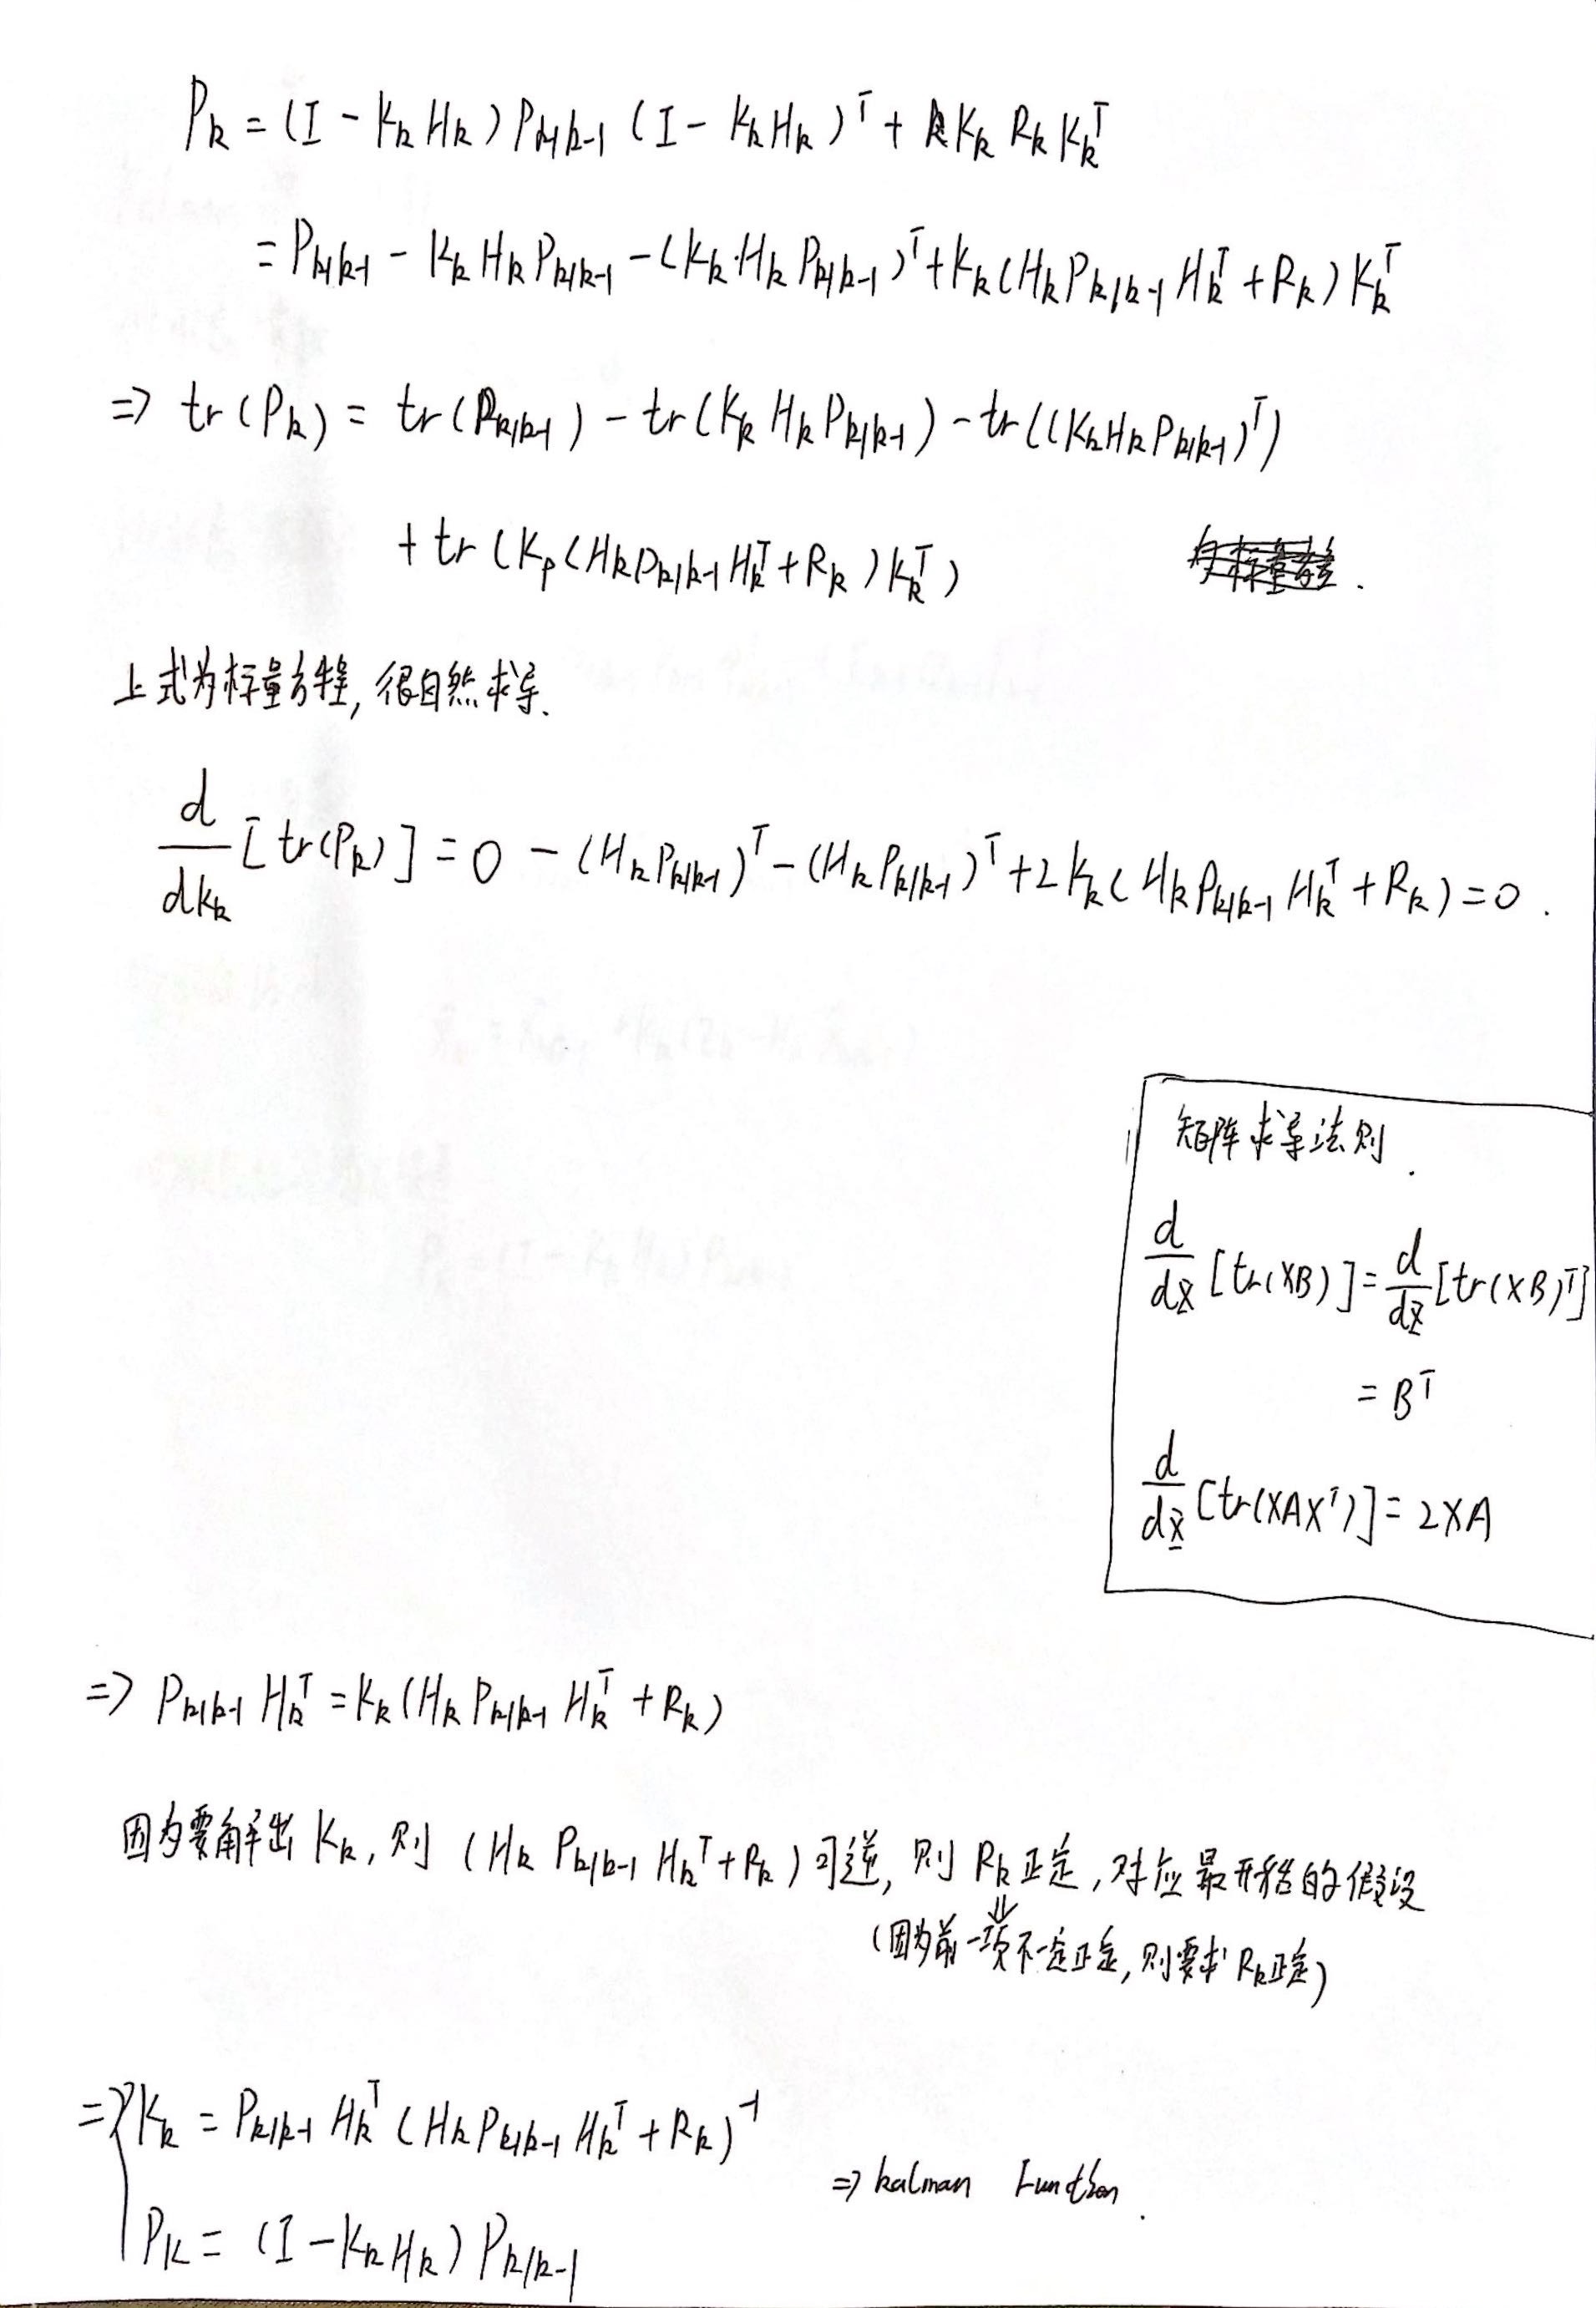 P_k = (I - K_k H_k) P_{k|k-1} (I - K_k H_k)^T + K_k R_k K_k^T
= P_{k|k-1} - K_k H_k P_{k|k-1} - (K_k·H_k P_{k|k-1})^T + K_k (H_k P_{k|k-1} H_k^T + R_k) K_k^T
=> tr(P_k) = tr(P_{k|k-1}) - tr(K_k H_k P_{k|k-1}) - tr((K_k H_k P_{k|k-1})^T)
+ tr(K_p (H_k P_{k|k-1} H_k^T + R_k) K_k^T)
上式为标量方程, 很自然求导.
d/dK_k [tr(P_k)] = 0 - (H_k P_{k|k-1})^T - (H_k P_{k|k-1})^T + 2K_k (H_k P_{k|k-1} H_k^T + R_k) = 0.
矩阵求导法则.
d/dX [tr(XB)] = d/dX [tr(XB)^T]
= B^T
d/dX [tr(XAX^T)] = 2XA
=> P_{k|k-1} H_k^T = K_k (H_k P_{k|k-1} H_k^T + R_k)
因为要解出 K_k, 则 (H_k P_{k|k-1} H_k^T + R_k) 可逆, 则 R_k 正定, 对应最开始的假设
⇓
(因为前一项不一定正定, 则要求 R_k 正定)
=> { K_k = P_{k|k-1} H_k^T (H_k P_{k|k-1} H_k^T + R_k)^{-1}
P_k = (I - K_k H_k) P_{k|k-1}
=> kalman Function.